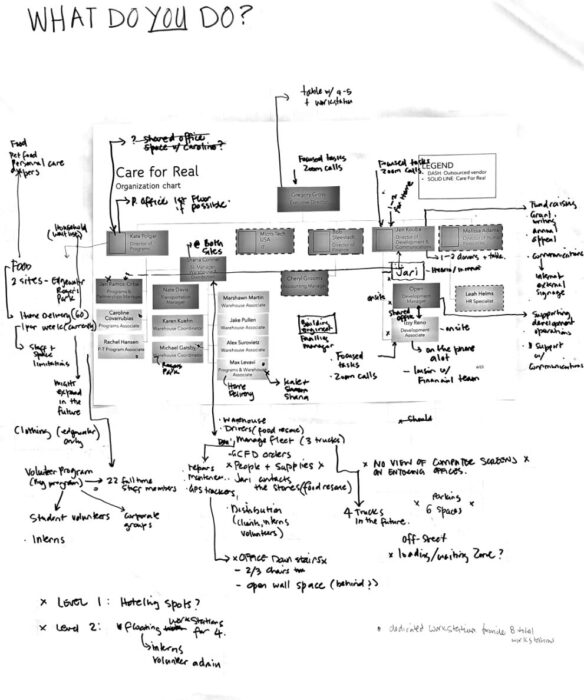 WHAT DO YOU DO?
table w/ 4-5
+ workstation
? shared office
space w/ Caroline?
Food
Pet food
Personal care
Focused tasks
Zoom calls
Focused tasks
Zoom calls
LEGEND
DASH: Outsourced vendor
SOLID LINE: Care For Real
Care for Real
Organization chart
P. office 1st floor
if possible.
Fundraising
Grant
writing
annual
appeal
Kate Folgar
Director of
Programs
@ Both
Sites
Director of
Development &
1-2 donors + table
Communications
Internal
external
signage
Household
Jari
FOOD
2 sites - Edgewater
Rogers
Park
Nate Davis
Transportation
Manager
Marshawn Martin
Warehouse Associate
Open
Development
Manager
Leah Helms
HR Specialist
onsite
Caroline
Covarrubias
Programs Associate
Karen Kuehn
Warehouse Coordinator
Jake Pullen
Warehouse Associate
Building
engineer
Facilities
manager
shared
office
Izzy Reno
Development
Associate
onsite
Supporting
development
operations
Home Delivery (60)
1 per week (currently)
Rachel Hansen
P/T Program Associate
Michael Gatsby
Warehouse Coordinator
Alex Surowietz
Warehouse Associate
Focused
tasks
Zoom calls
on the phone
a lot
Support w/
Communications
Staff +
Space
limitations
Rogers
Park
Max Levavi
Programs & Warehouse
Associate
liaison w/
Financial team
Home
Delivery
Kate +
Shana
might
expand
in the
future
Clothing (edgewater)
only
warehouse
Drivers (food rescue)
Manage fleet (3 trucks)
GCFD orders
x People + Supplies x
repairs
Jari contacts
the stores (food rescue)
GPS trackers
x should
x NO VIEW OF COMPUTER SCREENS x
ON ENTERING OFFICES.
Volunteer Program
(Key program)
22 full time
staff members
Student volunteers
corporate
groups
Interns
Distribution
(clients, interns
volunteers)
4 Trucks
in the future.
x Parking x
6 spaces
off-street
x loading/waiting zone?
x OFFICE Downstairs x
- 2/3 chairs
- open wall space (behind?)
x LEVEL 1: Hoteling spots?
x Level 2: floating workstations
for 4.
interns
volunteer admin
* dedicated workstation
8 total